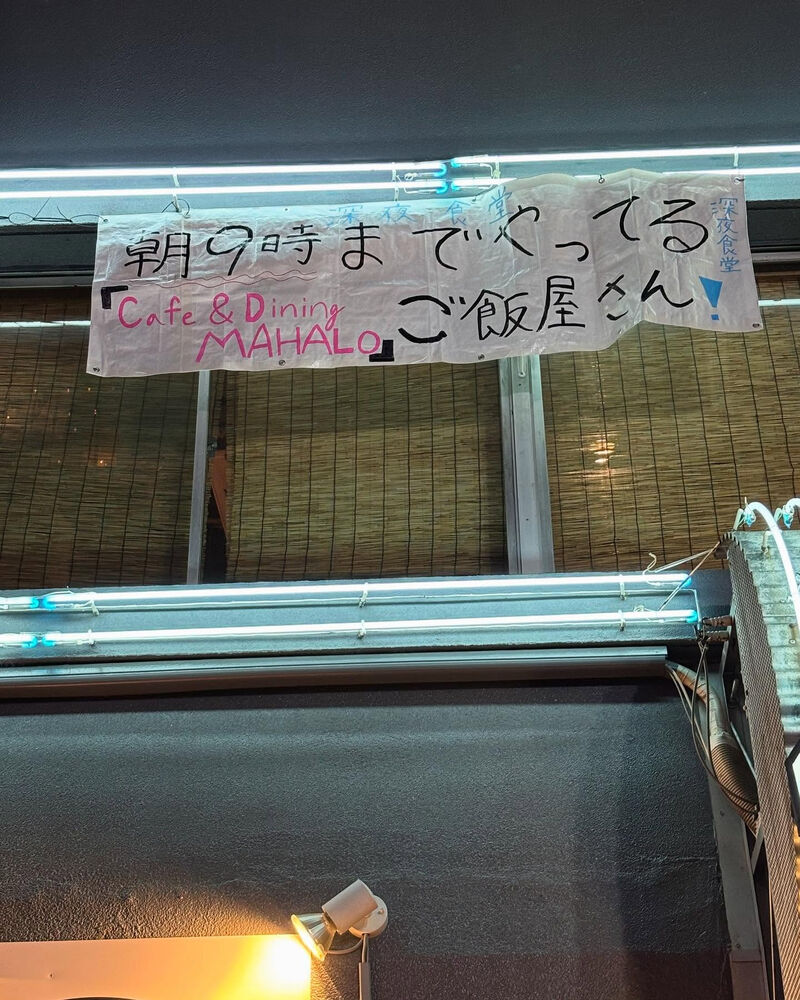 深夜食堂
朝9時までやってる
「Cafe & Dining
MAHALO」ご飯屋さん!
深夜食堂